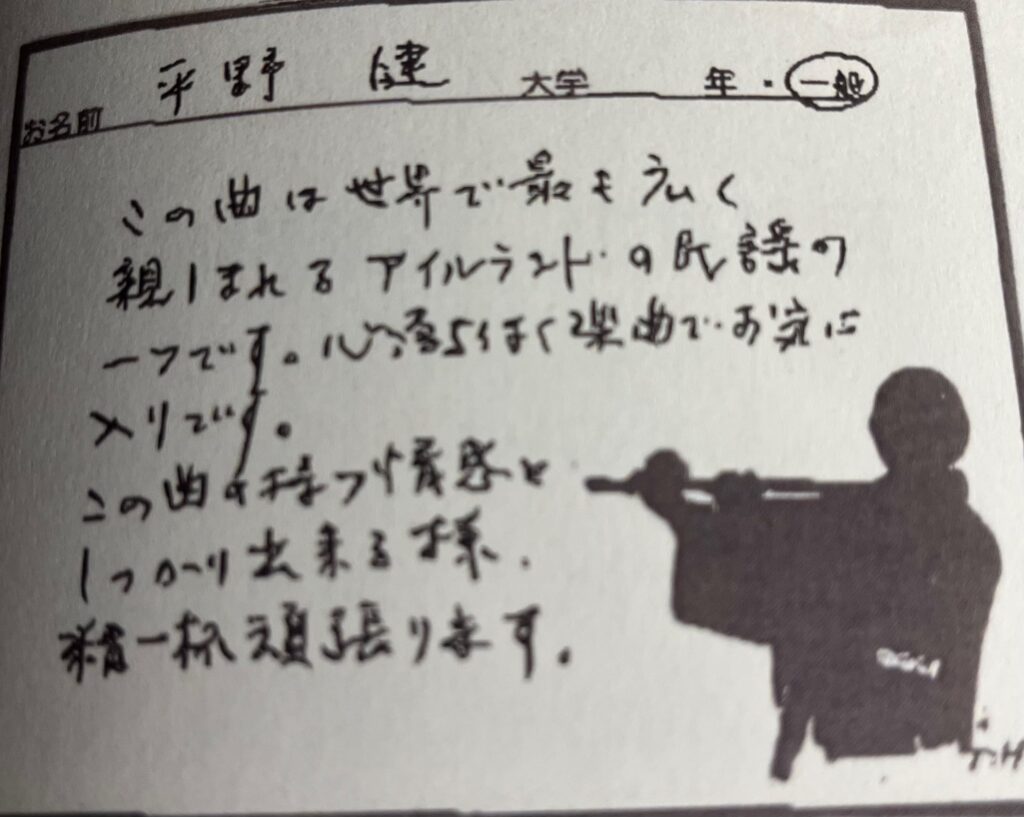 お名前 平野 健 大学 年・一般
この曲は世界で最も広く
親しまれるアイルランドの民謡の
一つです。心落ちく楽曲でお気に
入りです。
この曲の持つ情感を
しっかり出来る様、
精一杯頑張ります。
T.H